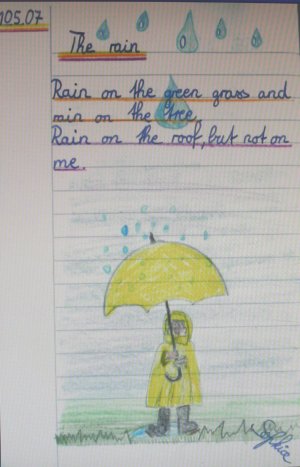 105.07
The rain
Rain on the green grass and
rain on the tree,
Rain on the roof, but not on
me.
Sofhia